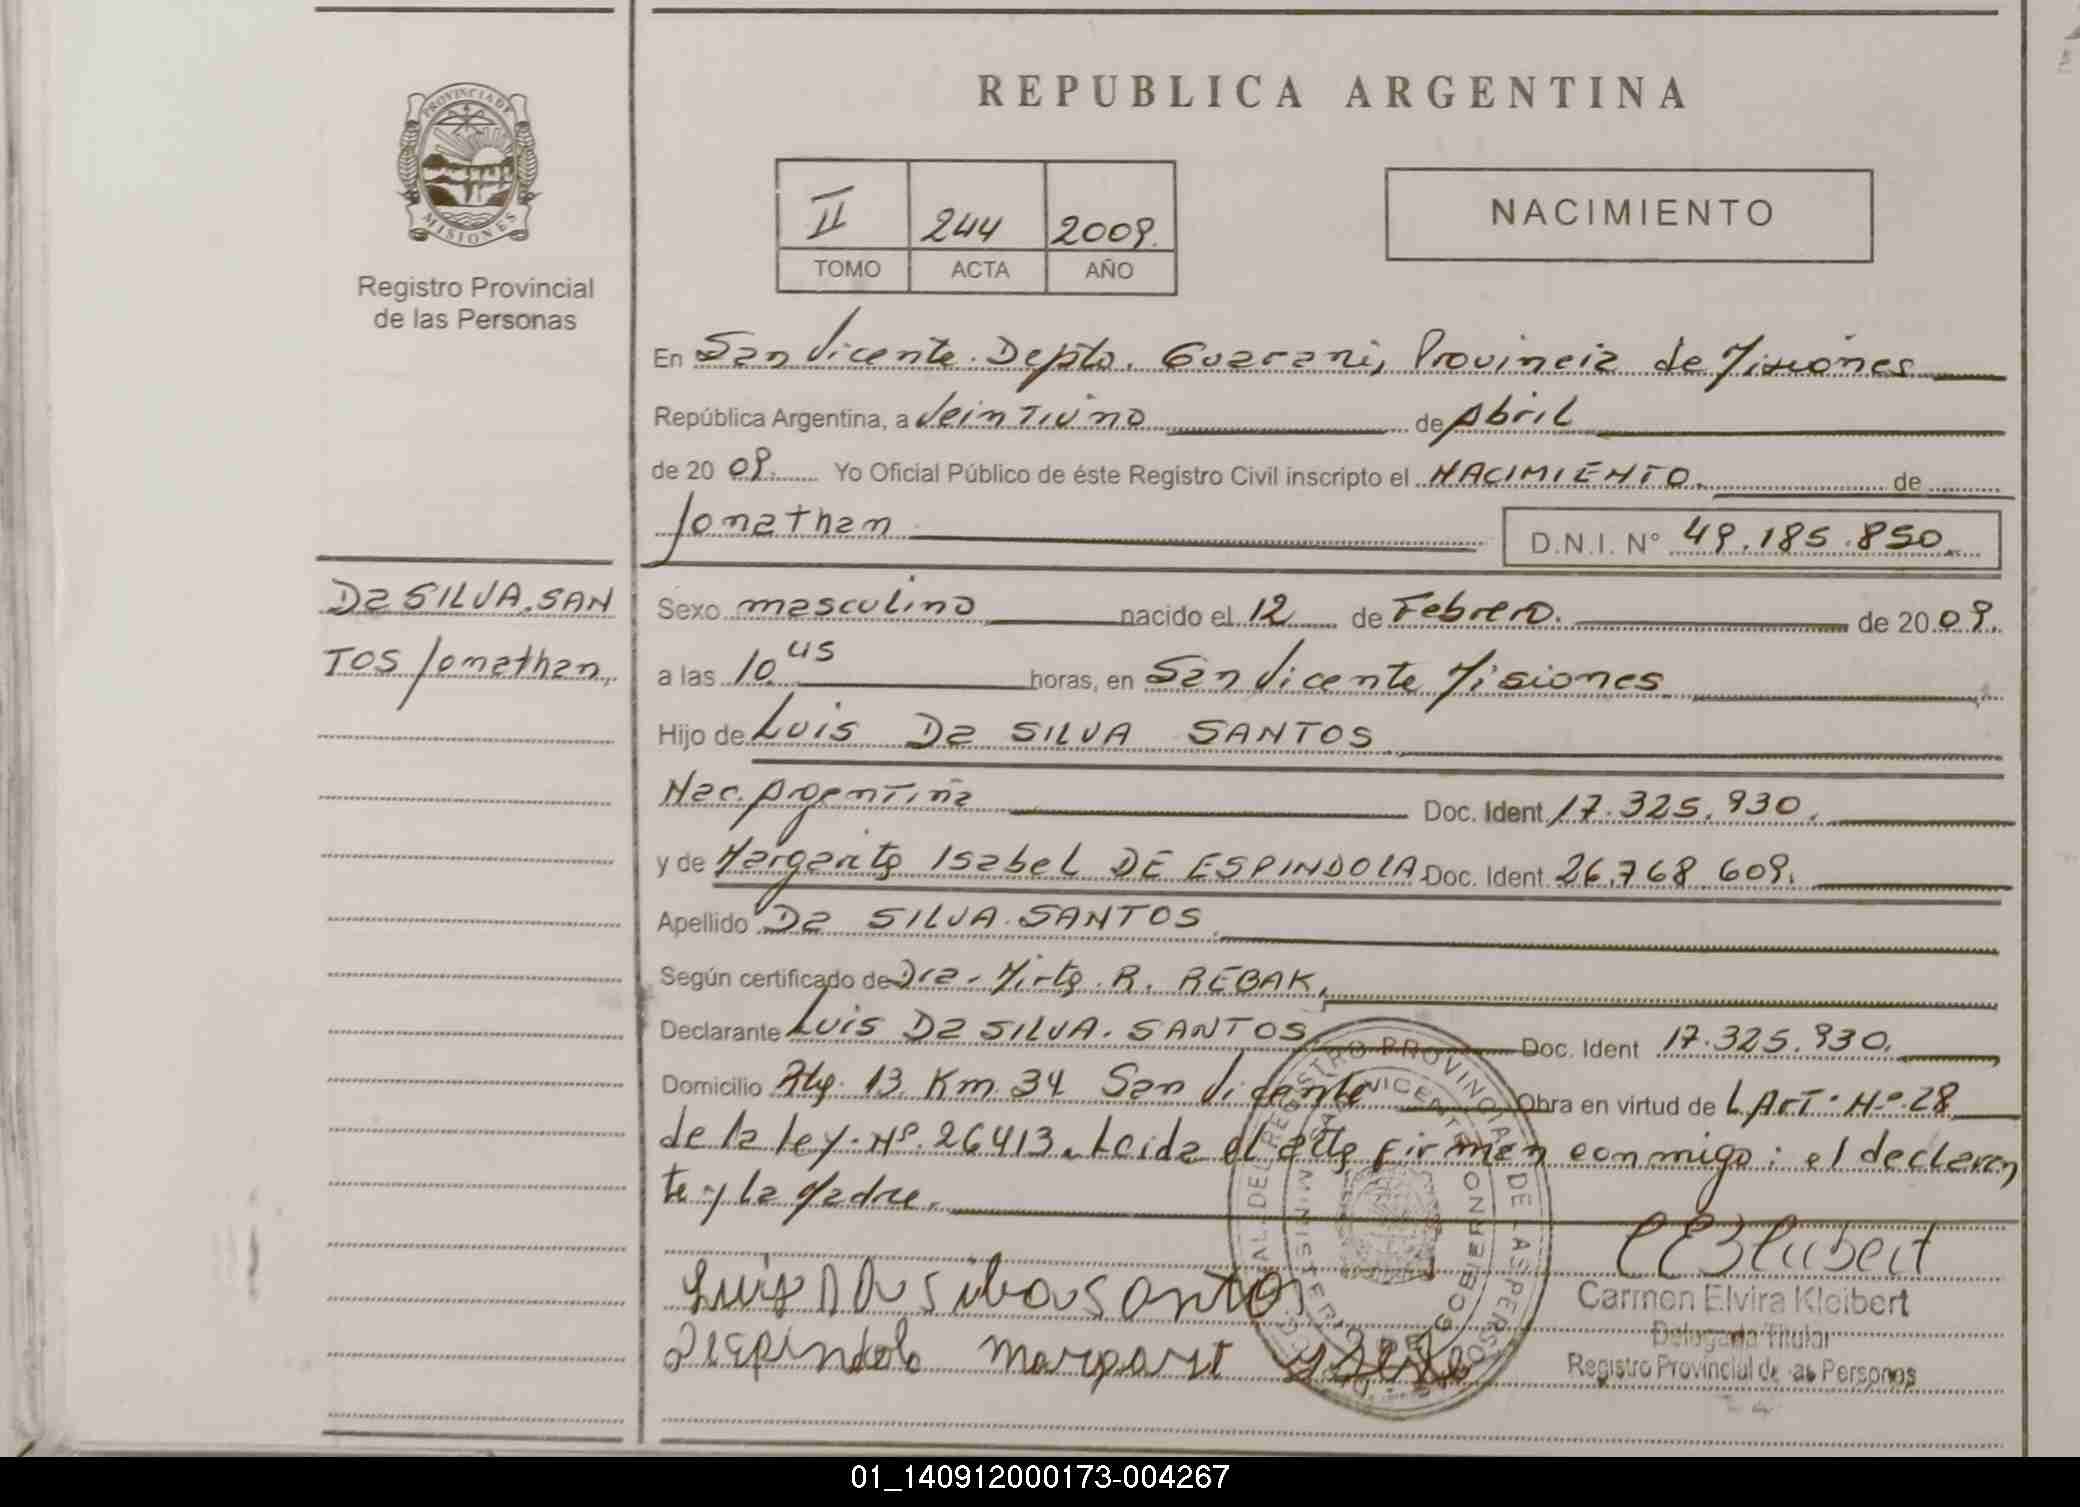 REPUBLICA ARGENTINA
PROVINCIA DE
MISIONES
Registro Provincial
de las Personas
II 244 2009.
TOMO ACTA AÑO
NACIMIENTO
En San Vicente. Depto. Guarani, Provincia de Misiones
República Argentina, a Veintiuno de Abril
de 20 09. Yo Oficial Público de éste Registro Civil inscripto el NACIMIENTO. de
Jonathan D.N.I. N° 49.185.850.
Da SILVA.SAN
TOS Jonathan,
Sexo masculino nacido el 12 de Febrero. de 20 09.
a las 10 45 horas, en San Vicente Misiones
Hijo de Luis Da SILVA SANTOS
Nac. Argentina Doc. Ident 17.325.930.
y de Margarita Isabel DE ESPINDOLA Doc. Ident 26.768.609.
Apellido Da SILVA.SANTOS
Según certificado de Dra. Mirta R. REBAK,
Declarante Luis Da SILVA.SANTOS Doc. Ident 17.325.930.
Domicilio Rta. 13 Km. 34 San Vicente Obra en virtud de L Art. Nº.28
de la Ley. Nº.26413. Leida el acta firman conmigo: el declaran
te y la Madre.
Luis Da Silva Santo
Carmen Elvira Kleibert
Delegada Titular
Registro Provincial de las Personas
01_140912000173-004267